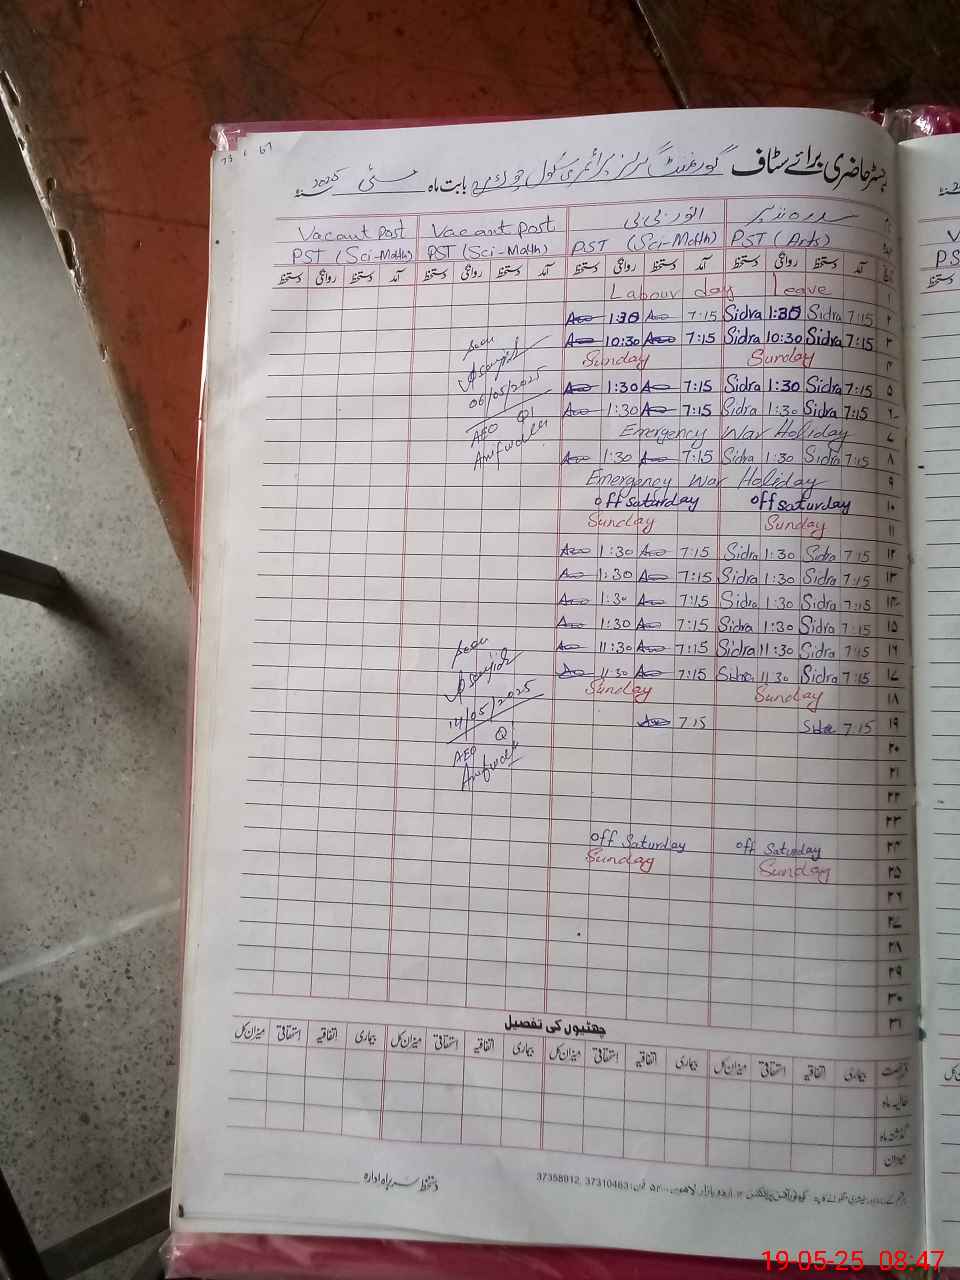 رجسٹر حاضری برائے سٹاف گورنمنٹ گرلز پرائمری سکول بابت ماہ مئی 2025
انور بی بی
Vacant Post Vacant Post
PST (Sci-Math) PST (Sci-Math) PST (Sci-Math) PST (Arts)
آمد دستخط روانگی دستخط آمد دستخط روانگی دستخط آمد دستخط روانگی دستخط آمد دستخط روانگی دستخط
۱ Labour day Leave
۲ 1:30 7:15 Sidra 1:30 Sidra 7:15
۳ 10:30 7:15 Sidra 10:30 Sidra 7:15
۴ Sunday Sunday
۵ 1:30 7:15 Sidra 1:30 Sidra 7:15
۶ 1:30 7:15 Sidra 1:30 Sidra 7:15
۷ Emergency War Holiday
۸ 1:30 7:15 Sidra 1:30 Sidra 7:15
۹ Emergency War Holiday
۱۰ off saturday off saturday
۱۱ Sunday Sunday
۱۲ 1:30 7:15 Sidra 1:30 Sidra 7:15
۱۳ 1:30 7:15 Sidra 1:30 Sidra 7:15
۱۴ 1:30 7:15 Sidra 1:30 Sidra 7:15
۱۵ 1:30 7:15 Sidra 1:30 Sidra 7:15
۱۶ 11:30 7:15 Sidra 11:30 Sidra 7:15
۱۷ 11:30 7:15 Sidra 11:30 Sidra 7:15
۱۸ Sunday Sunday
۱۹ 7:15 Sidra 7:15
۲۰
۲۱
۲۲
۲۳
۲۴ off Saturday off Saturday
۲۵ Sunday Sunday
۲۶
۲۷
۲۸
۲۹
۳۰
۳۱
06/05/2025
AEO
14/05/2025
AEO
چھٹیوں کی تفصیل
رخصت بیماری اتفاقیہ استحقاقی میزان کل بیماری اتفاقیہ استحقاقی میزان کل بیماری اتفاقیہ استحقاقی میزان کل بیماری اتفاقیہ استحقاقی میزان کل
حالیہ ماہ
گذشتہ ماہ
میزان
دستخط سربراہ ادارہ
اردو بازار لاہور فون: 37310463, 37358912
19-05-25 08:47